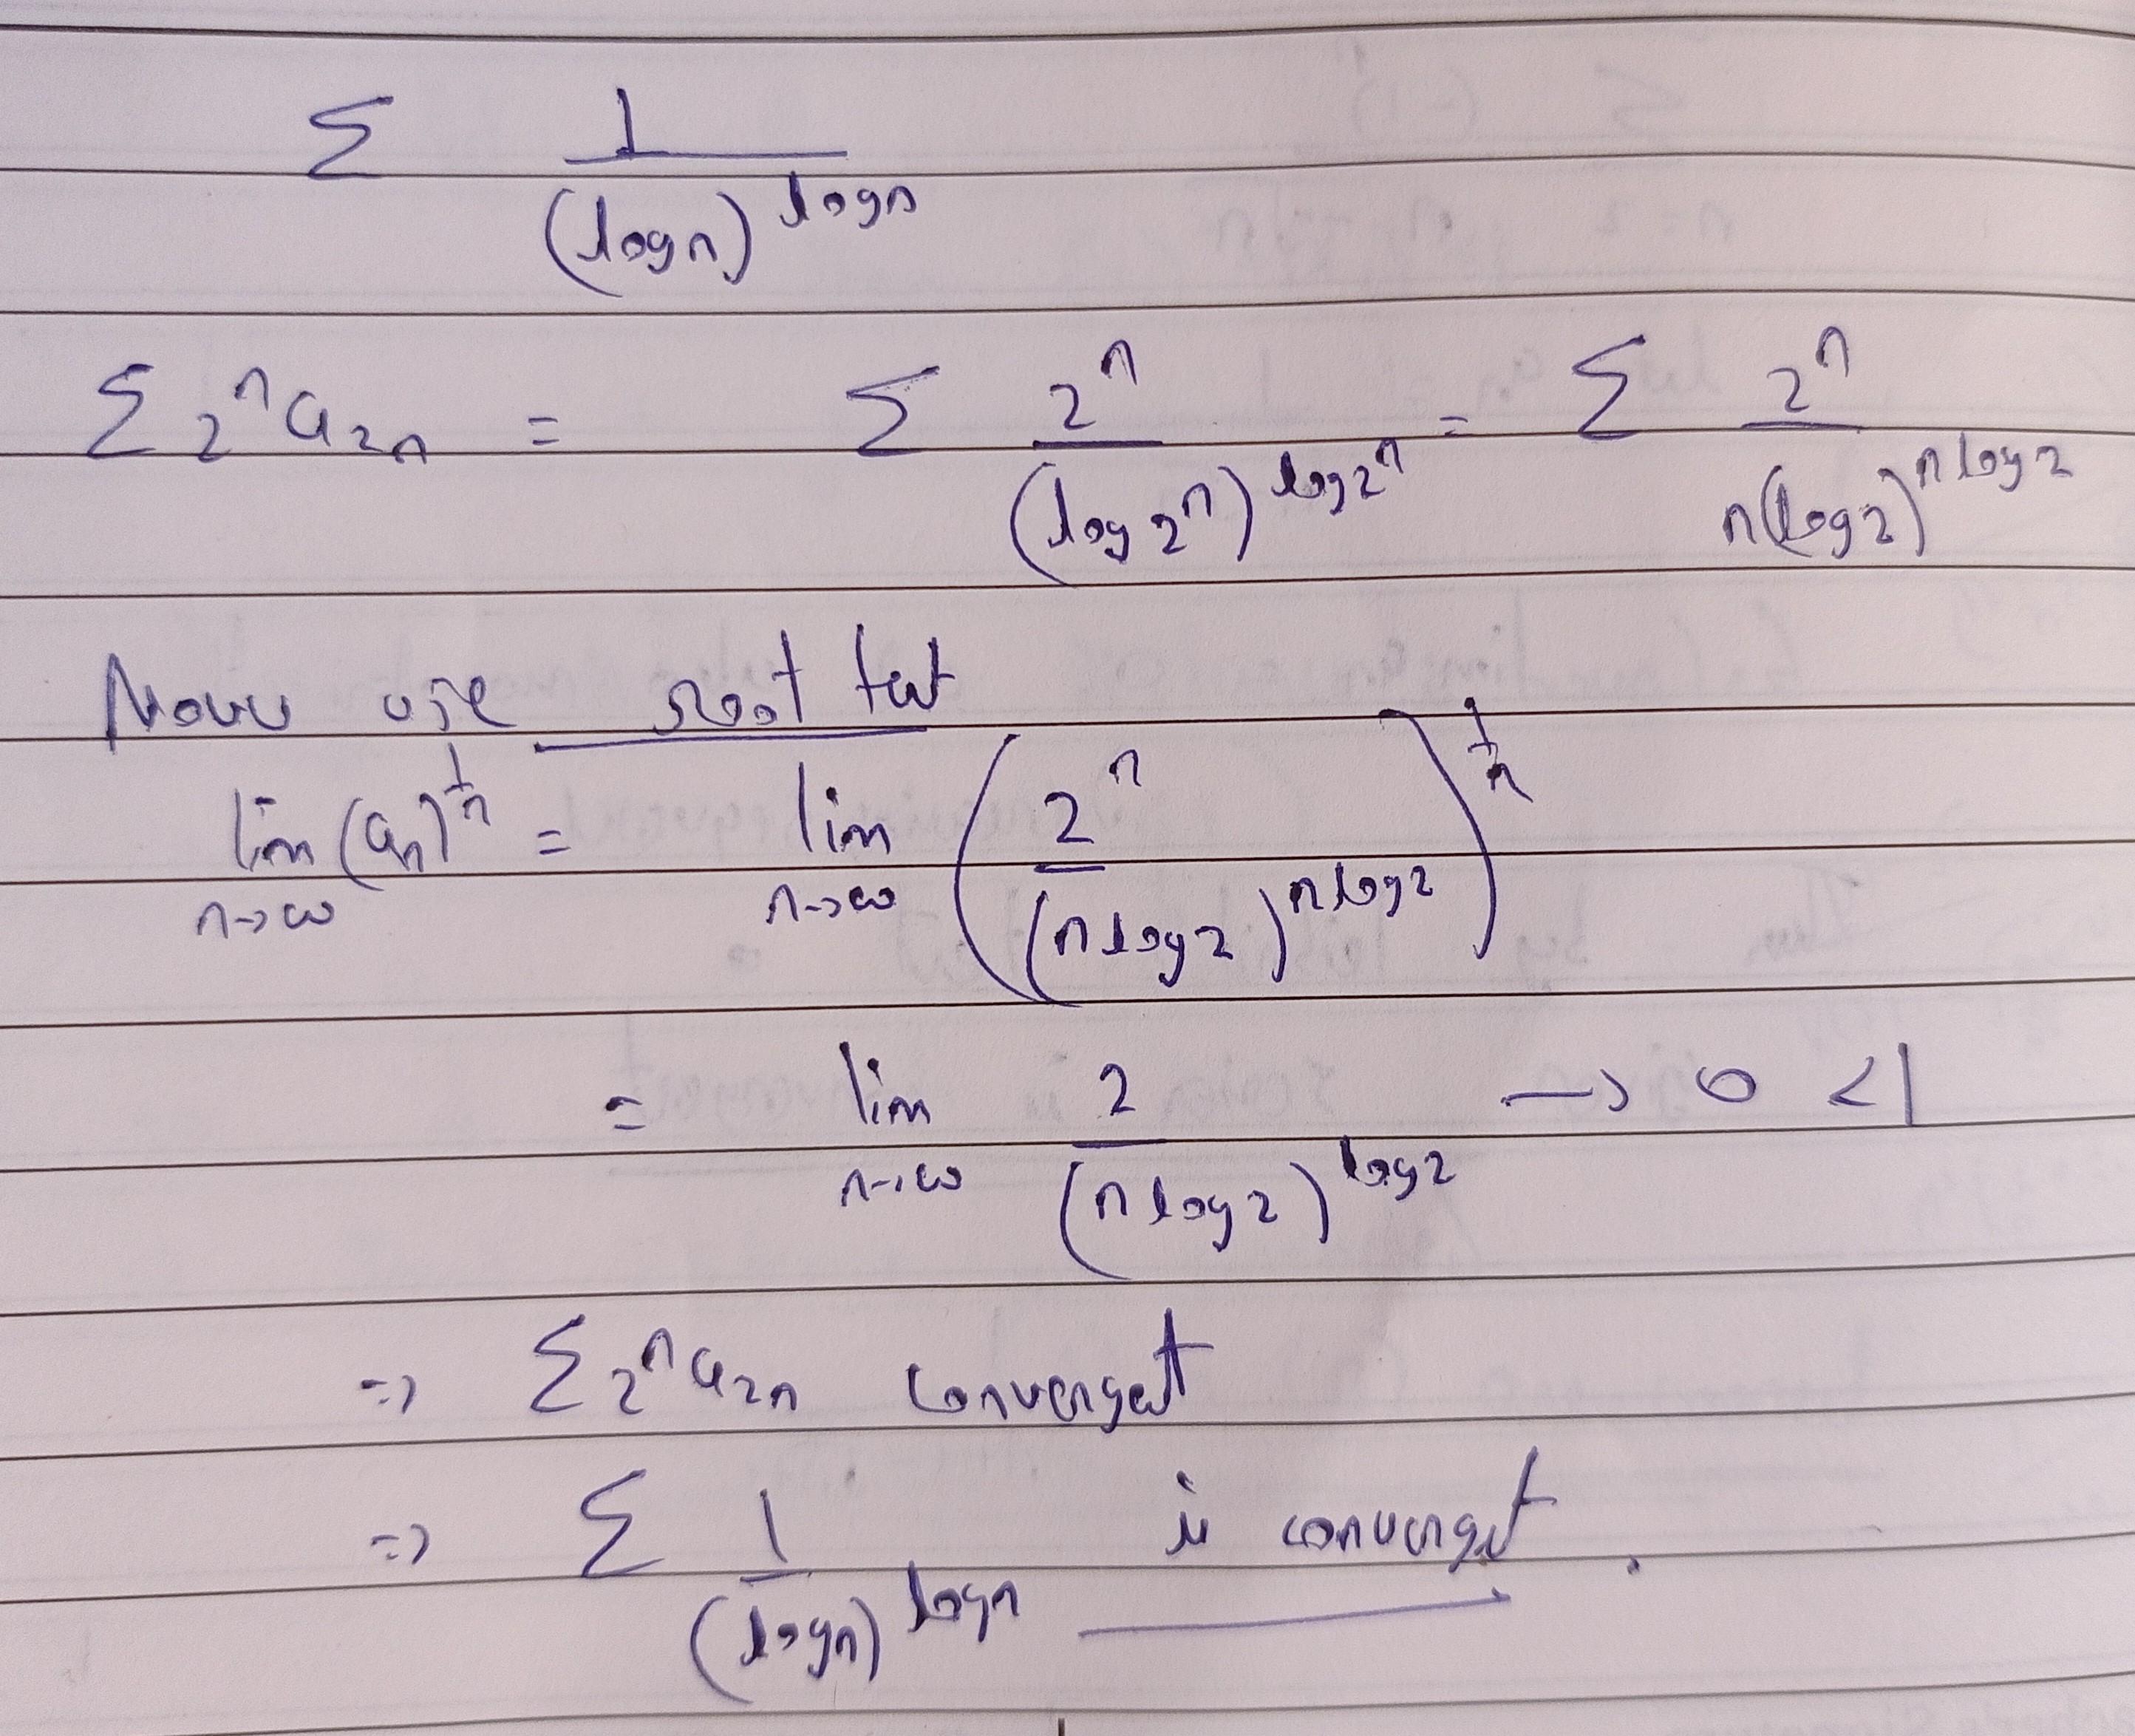 Σ 1/(log n)^{log n}
Σ 2^n a_{2n} = Σ 2^n/(log 2^n)^{log 2^n} = Σ 2^n/n(log 2)^{n log 2}
Now use root test
lim_{n→∞} (a_n)^{1/n} = lim_{n→∞} (2^n/(n log 2)^{n log 2})^{1/n}
= lim_{n→∞} 2/(n log 2)^{log 2} → 0 < 1
⇒ Σ 2^n a_{2n} convergent
⇒ Σ 1/(log n)^{log n} is convergent.